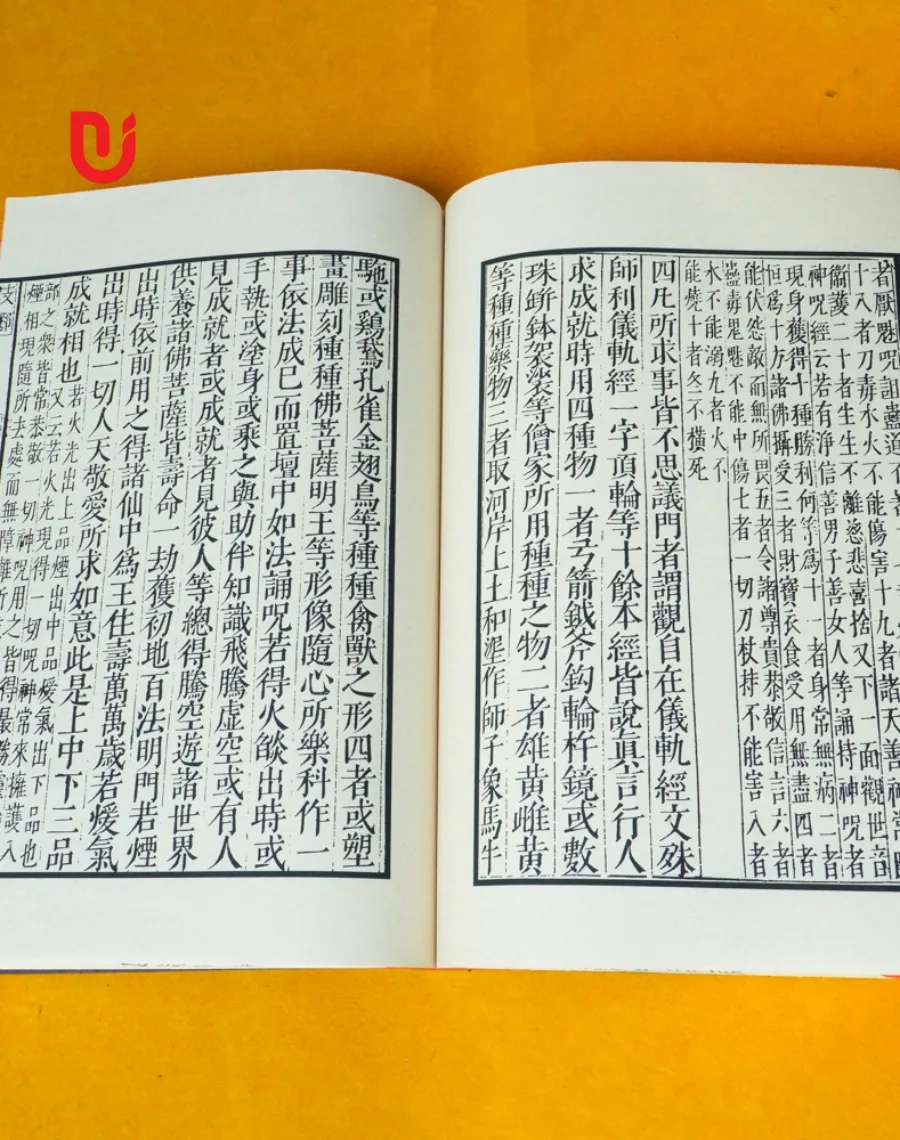 者厭魅呪詛蠱道不
十入者刀毒水火不能傷害十九者諸天善神常
衞護二十者生生不離慈悲喜捨又下一面觀世音
神呪經云若有淨信善男子善女人等誦持神呪者
現身獲得十種勝利何等爲十一者身常無病二者
恒爲十方諸佛攝受三者財寶衣食受用無盡四者
能伏怨敵而無所畏五者令諸尊貴恭敬信言六者
蠱毒鬼魅不能中傷七者一切刀杖持不能害入者
水不能溺九者火不
能燒十者冬不橫死
四凡所求事皆不思議門者謂觀自在儀軌經文殊
師利儀軌經一字頂輪等十餘本經皆說眞言行人
求成就時用四種物一者弓箭鉞斧鈎輪杵鏡或數
珠鉼鉢袈裟等僧家所用種種之物二者雄黃雌黃
等種種藥物三者取河岸上土和湼作師子象馬牛
駞或鷄鵞孔雀金翅鳥等種種禽獸之形四者或塑
畫雕刻種種佛菩薩明王等形像隨心所樂科作一
事依法成已而置壇中如法誦呪若得火燄出時或
手執或塗身或乘之與助伴知識飛騰虛空或有人
見成就者或成就者見彼人等總得騰空遊諸世界
供養諸佛菩薩皆壽命一劫獲初地百法明門若煙
出時依前用之得諸仙中爲王住壽萬萬歲若煖氣
出時得一切人天敬愛所求如意此是上中下三品
成就相也若火光出上品煙出中品煖氣出下品也
又云若火光現得一切呪神常來擁護入
部之槃皆常恭敬一切神呪用之皆得最勝
煙相現隨所去處而無障難所